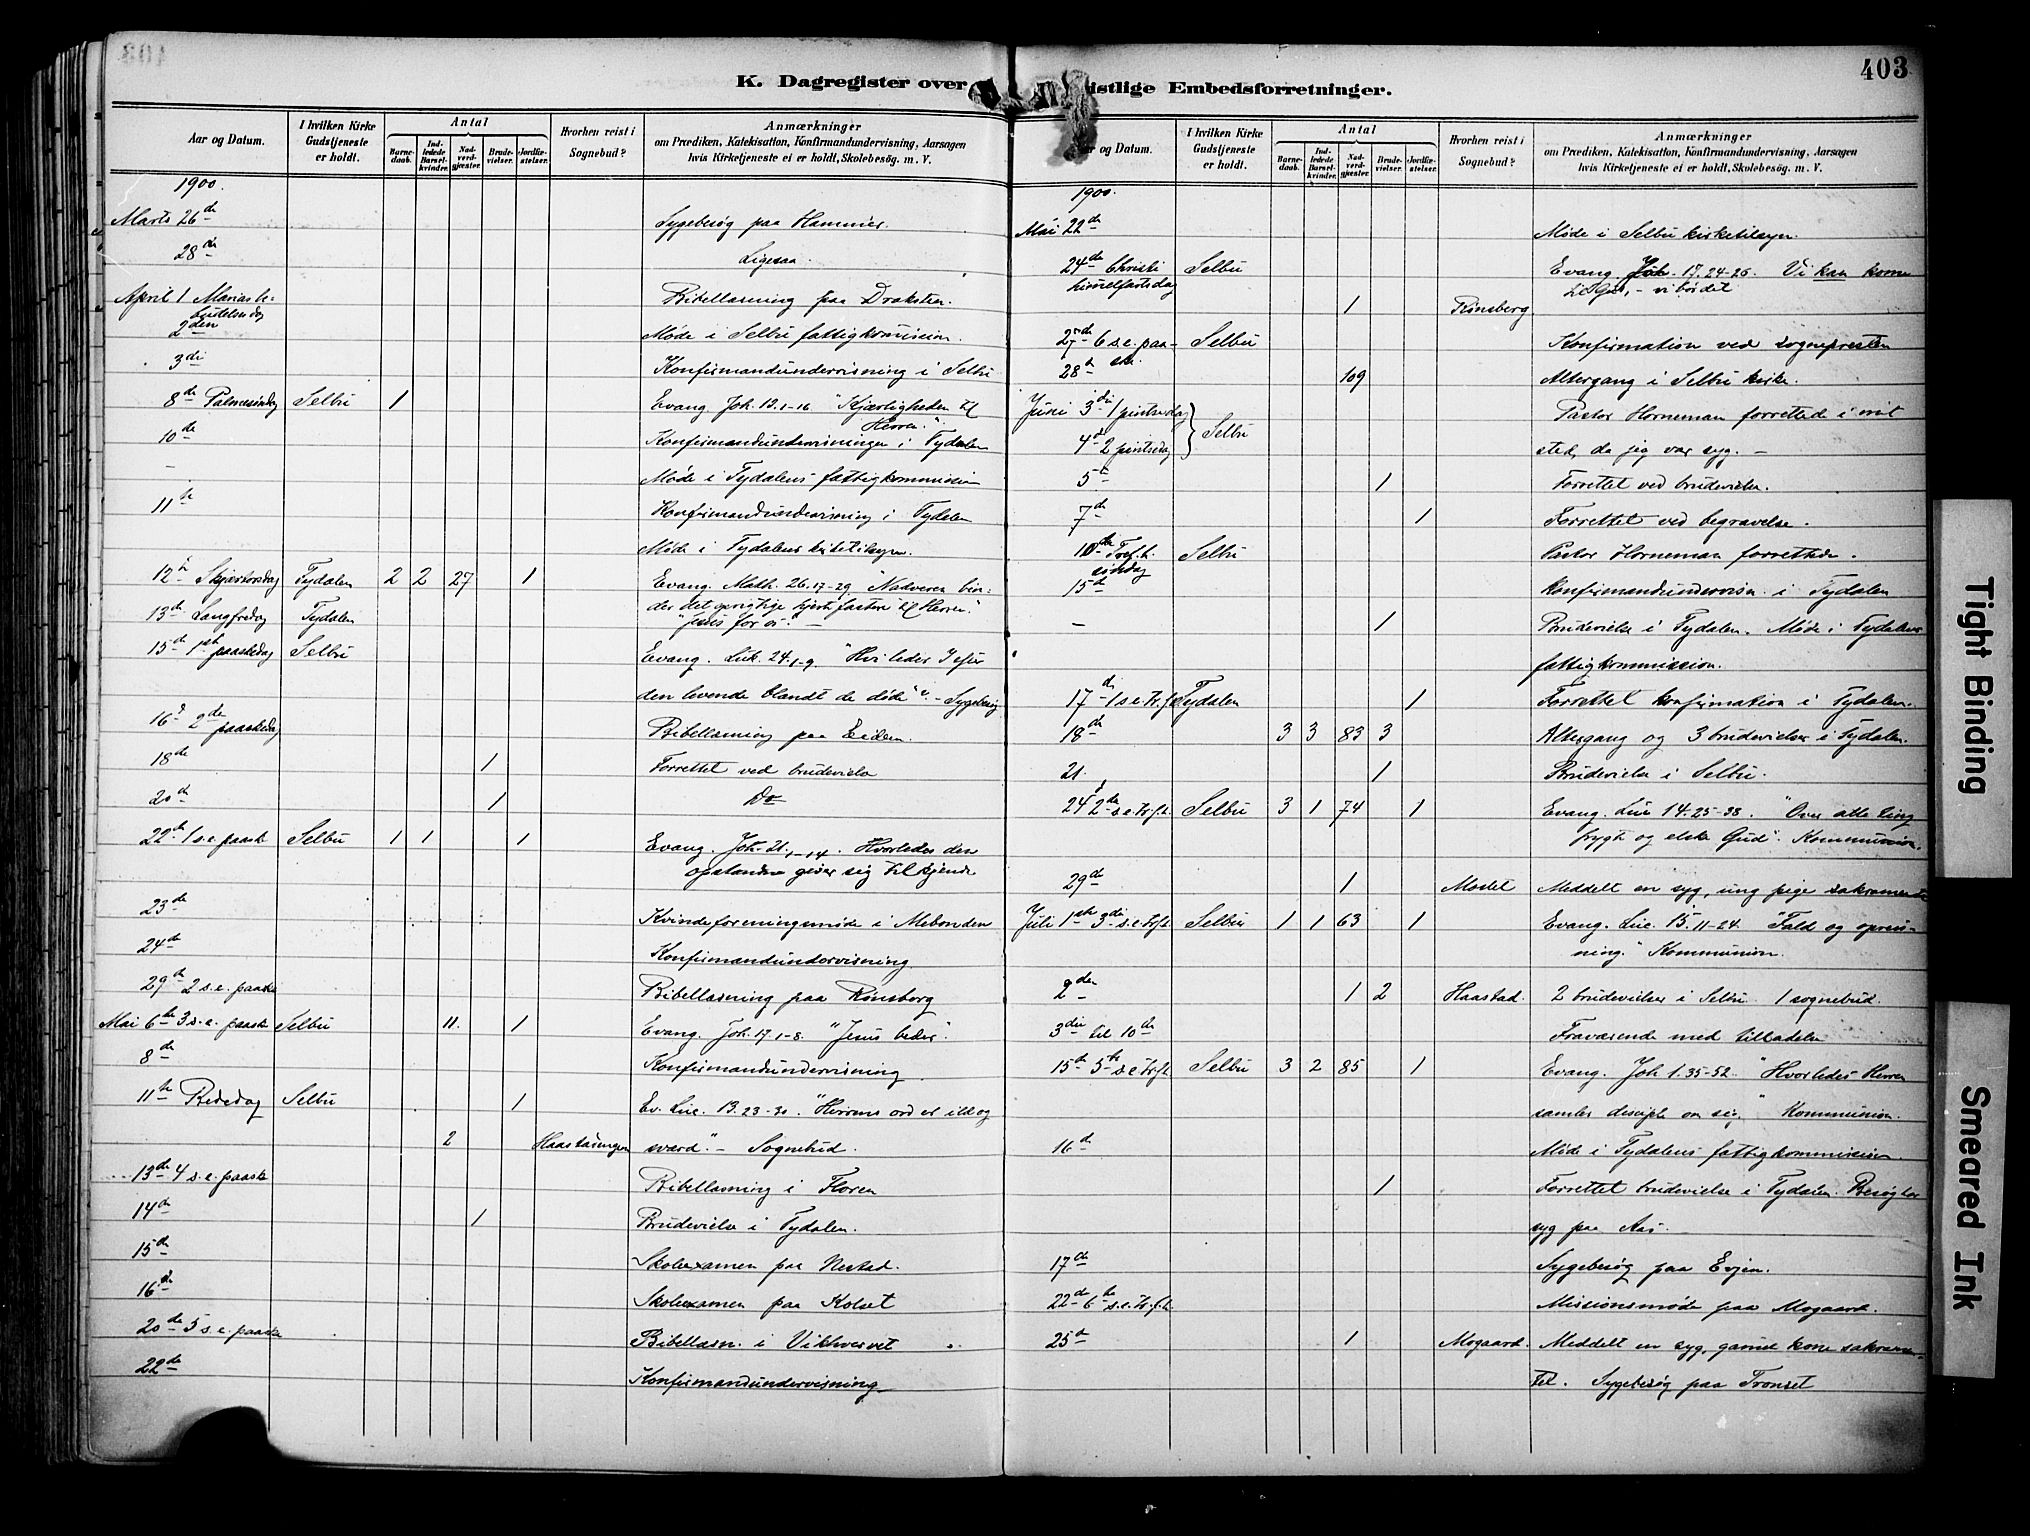 403
K. Dagregister over
istlige Embedsforretninger.
Aar og Datum.
I hvilken Kirke Gudstjeneste er holdt.
Antal
Barne-daab.
Ind-ledede Barsel-kvinder.
Nad-verd-gjester.
Brude-vielser.
Jordfæ-stelser.
Hvorhen reist i Sognebud?
Anmærkninger
om Prædiken, Katekisation, Konfirmandundervisning, Aarsagen
hvis Kirketjeneste ei er holdt, Skolebesög. m. V.
1900.
Marts 26de Sygebesøg paa Hammer.
28de Ligesaa.
April 1 Marias be- Bibellæsning paa Draksten.
budelsesdag
2den Møde i Selbu fattigkomission.
3die Konfirmandundervisning i Selbu
8de Palmesøndag Selbu 1 Evang Joh. 12.1-16 "Kjærligheden til
Herren."
10de Konfirmandundervisningen i Tydalen
– Møde i Tydalens fattigkommission
11te Konfirmandundervisning i Tydalen
Møde i Tydalens kirketilsyn.
12te Skjærtorsdag Tydalen 2 2 27 1 Evang. Math. 26.17-29 "Nadveren bin-
der det oprigtige hjerte fastere til Herren."
13de Langfredag Tydalen "Jesus for os." –
15de 1ste paaskedag Selbu Evang. Luk. 24.1-9 "Hvi leder I efter
den levende blandt de døde". – Sygebesøg
16de 2den paaskedag Bibellæsning paa Eidem.
18de 1 Forrettet ved brudevielse
20de 1 Do
22de 1 s.e. paaske Selbu 1 1 1 Evang. Joh. 21.1-14. Hvorledes den
opstandne giver sig tilkjende
23de Kvindeforeningsmøde i Mebonden
24de Konfirmandundervisning
29de 2 s.e. paaske Bibellæsning paa Rønsberg
Mai 6te 3 s.e. paaske Selbu 11. 1 Evang. Joh. 17.1-8. "Jesus beder".
8de Konfirmandundervisning
11te Bededag Selbu 1 Ev. Luc. 13.23-30. "Herrens ord er ild og
2 Haastadengen sværd." – Sognebud.
13de 4 s.e. paaske Bibellæsning i Floren
14de 1 Brudevielse i Tydalen.
15de Skoleexamen paa Nestad.
16de Skoleexamen paa Kolset
20de 5 s.e. paaske Bibellæsn. i Vikhvervet
22de Konfirmandundervisning
403
og Datum.
I hvilken Kirke Gudstjeneste er holdt.
Antal
Barne-daab.
Ind-ledede Barsel-kvinder.
Nad-verd-gjester.
Brude-vielser.
Jordfæ-stelser.
Hvorhen reist i Sognebud?
Anmærkninger
om Prædiken, Katekisation, Konfirmandundervisning, Aarsagen
hvis Kirketjeneste ei er holdt, Skolebesög. m. V.
1900.
Mai 22de Møde i Selbu kirketilsyn.
24de Christi Selbu Evang. Joh. 17.24-26. Vi kan komme
himmelfartsdag til Gud, – vi bør det
1 Rønsberg
27de 6 s.e. paa- Selbu Konfirmation ved sognepresten
ske
28de 109 Altergang i Selbu kirke.
Juni 3die 1 pintsedag Selbu Pastor Horneman forrettede i mit
4de 2 pintsedag sted, da jeg var syg. –
5te 1 Forrettet ved brudevielse.
7de 1 Forrettet ved begravelse.
10de Tref. h. Selbu Pastor Horneman forrettede.
søndag
15de Konfirmandundervisn. i Tydalen
– 1 Brudevielse i Tydalen. Møde i Tydalens
fattigkommission.
17de 1 s.e. tr.f. Tydalen 1 Forrettet konfirmation i Tydalen.
18de 3 3 83 3 Altergang og 3 brudevielser i Tydalen.
21. 1 Brudevielse i Selbu.
24de 2den s.e. tr.f. Selbu 3 1 74 1 Evang. Luc 14.25-33. "Over alle ting
frygte og elske Gud". Kommunion.
29de 1 Moslet Meddelt en syg, ung pige sakramentet
Juli 1ste 3die s.e. tr.f. Selbu 1 1 63 1 Evang. Luc. 15.11-24. "Fald og opreis-
ning." Kommunion.
2den 1 2 Haastad. 2 brudevielser i Selbu. 1 sognebud.
3die til 10de Fraværende med tilladelse
15de 5te s.e. tr.f. Selbu 3 2 85 1 Evang. Joh 1.35-52. "Hvorledes Herren
samler disciple om sig." Kommunion.
16de Møde i Tydalens fattigkommission
1 Forrettet brudevielse i Tydalen. Besøg hos
syg paa Aas.
17de Sygebesøg paa Evjen.
22de 6te s.e. tr.f. Missionsmøde paa Mogaard.
25de 1 Mogaard. Meddelt en syg, gammel kone sakramen-
tet. Sygebesøg paa Tronset
Tight Binding
Smeared Ink